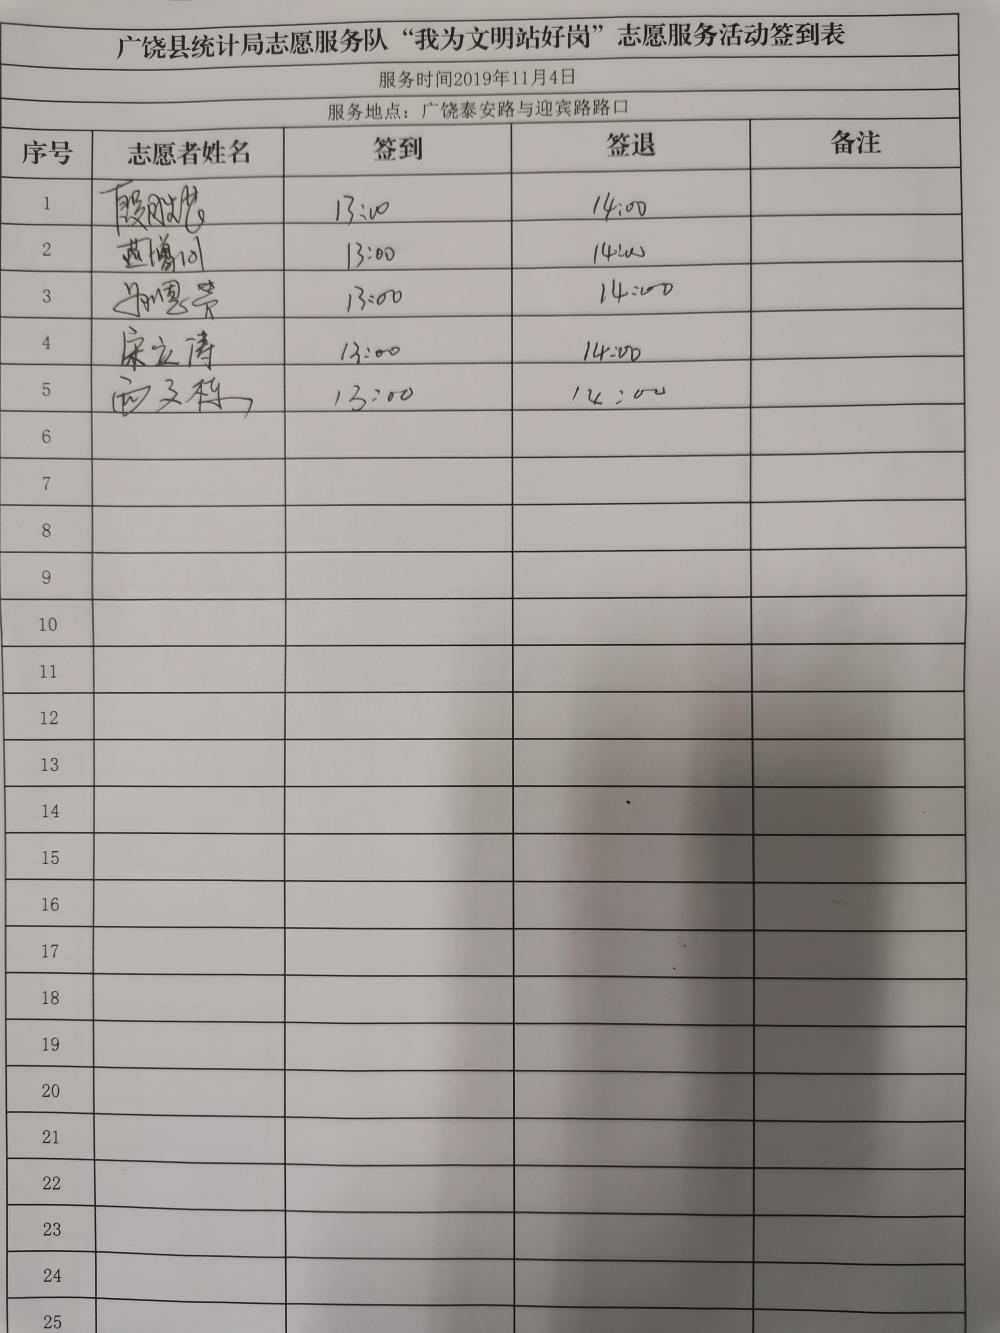 广饶县统计局志愿服务队“我为文明站好岗”志愿服务活动签到表
服务时间2019年11月4日
服务地点：广饶泰安路与迎宾路路口
序号 志愿者姓名 签到 签退 备注
1 13:00 14:00
2 13:00 14:00
3 13:00 14:00
4 宋立涛 13:00 14:00
5 文栋 13:00 14:00
6
7
8
9
10
11
12
13
14
15
16
17
18
19
20
21
22
23
24
25